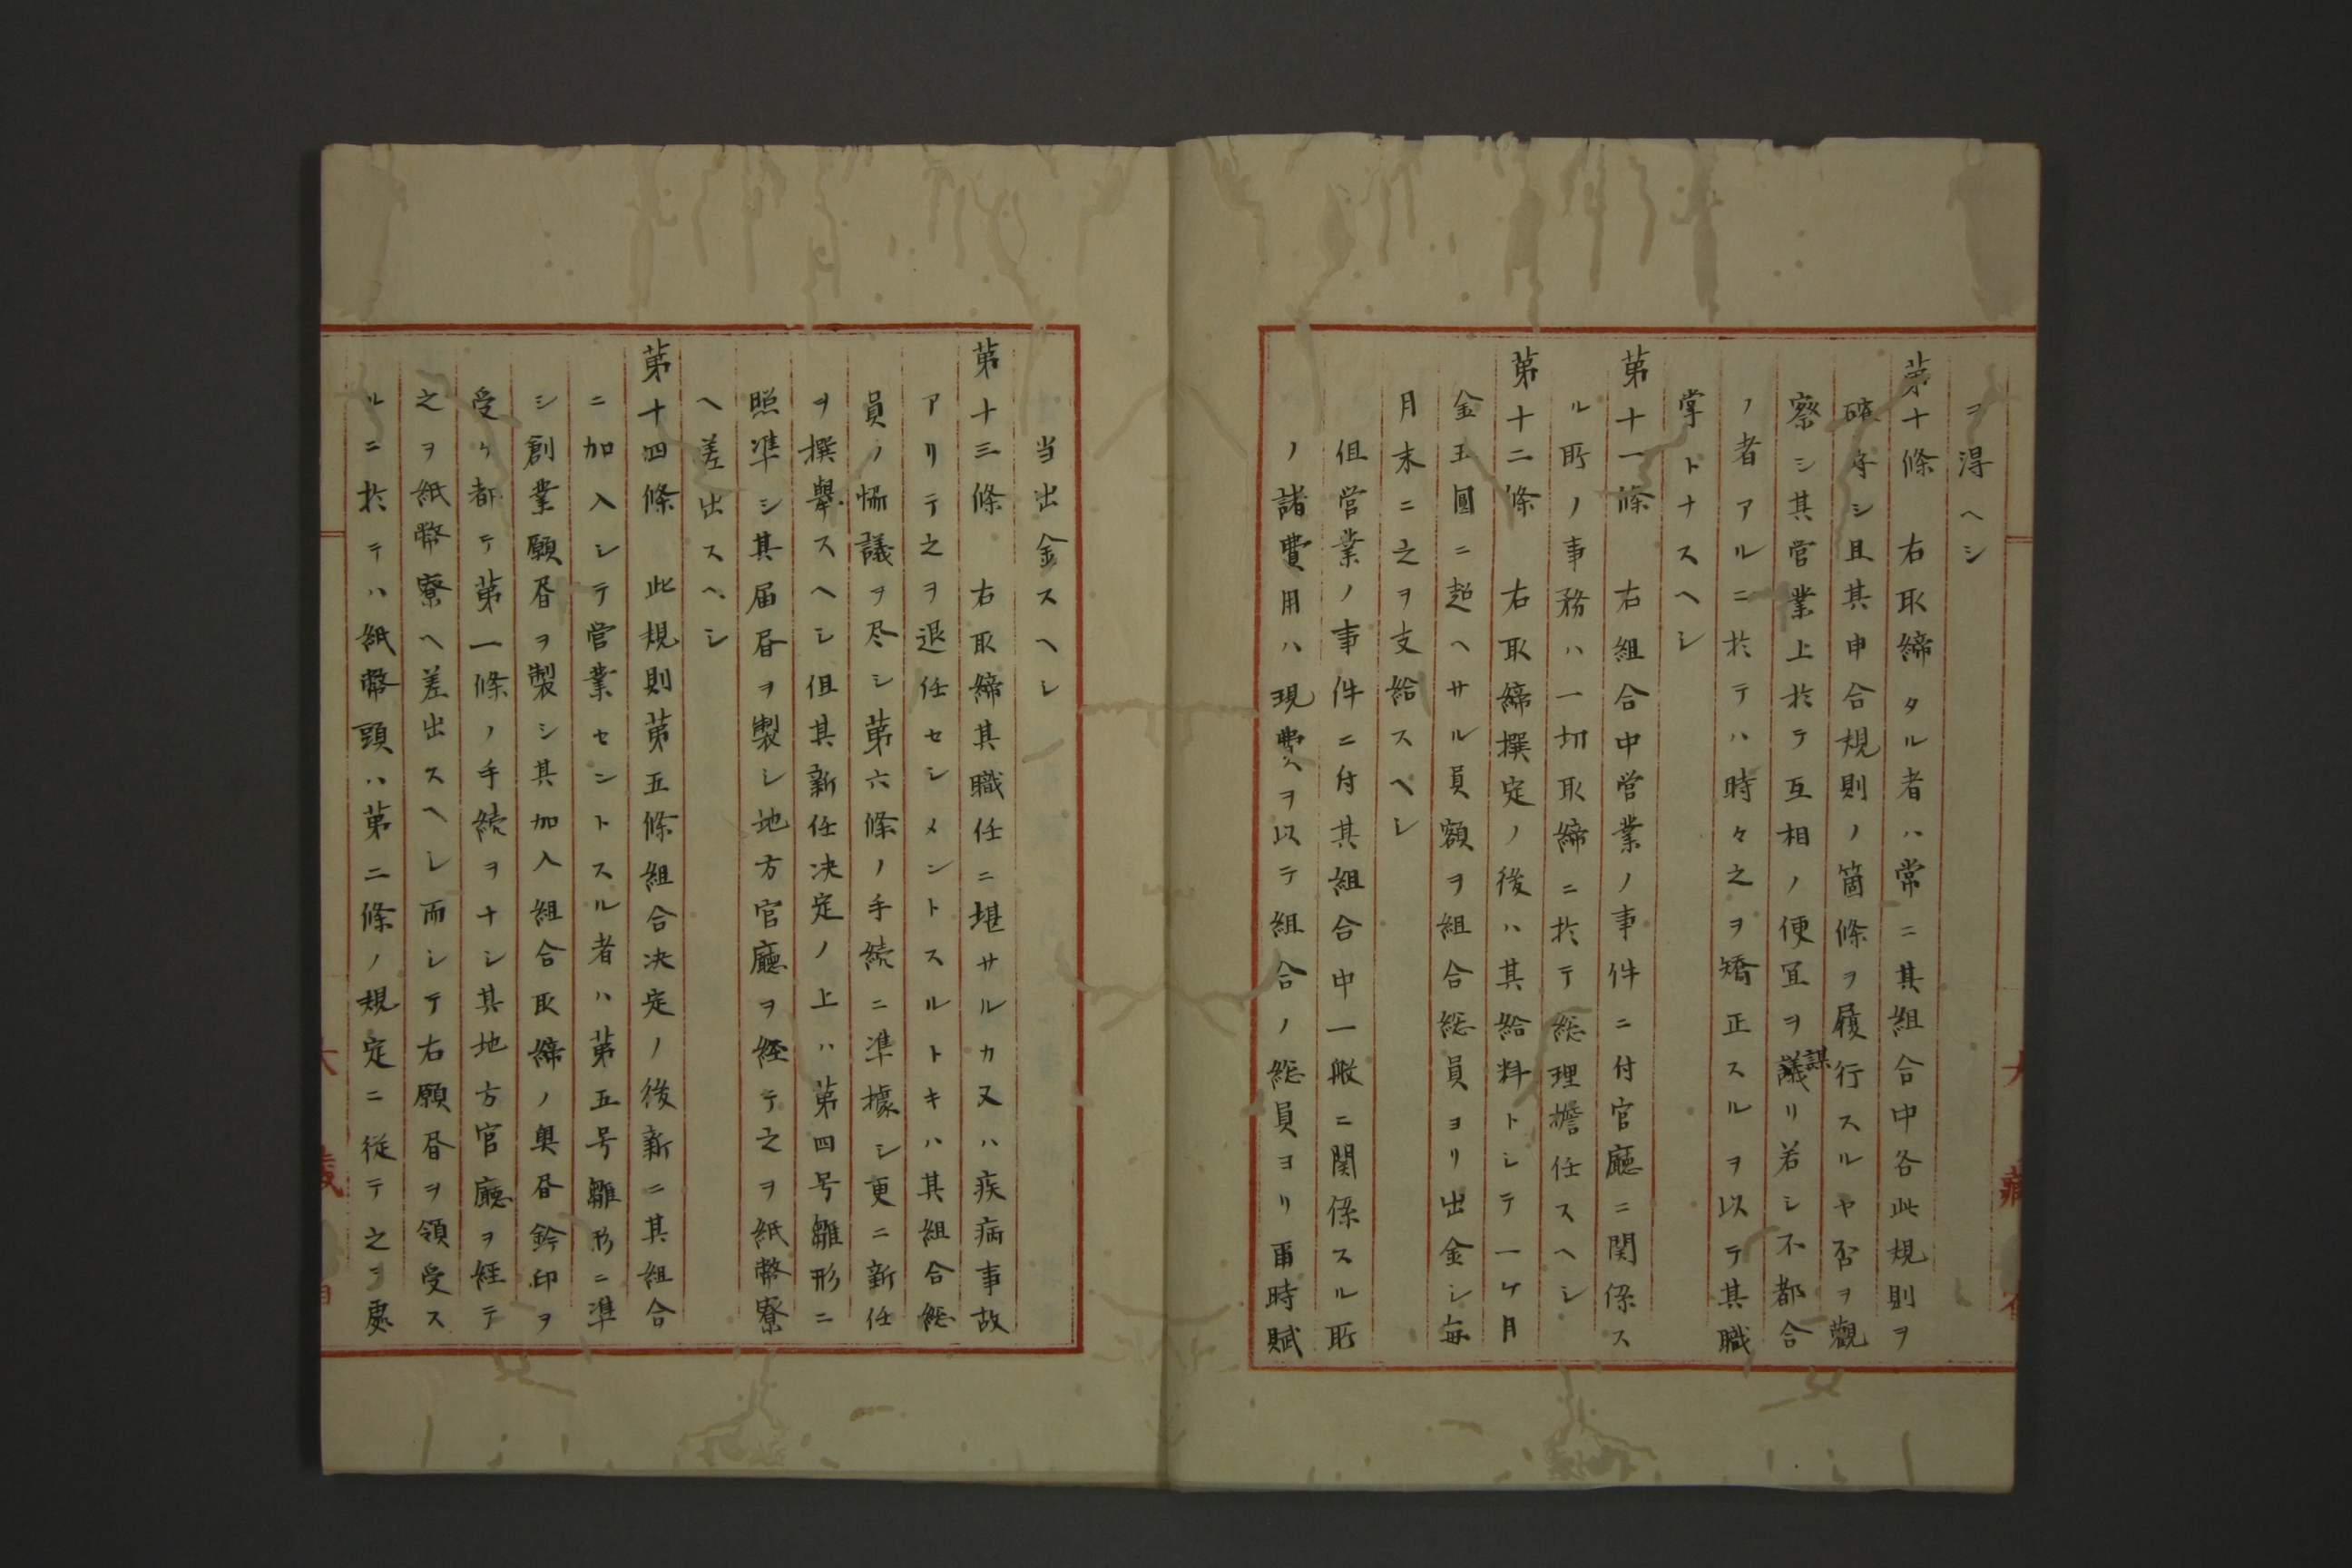 ヲ得ヘシ
第十條　右取締タル者ハ常ニ其組合中各此規則ヲ
確守シ且其申合規則ノ箇條ヲ履行スルヤ否ヲ觀
察シ其営業上於テ互相ノ便宜ヲ議謀リ若シ不都合
ノ者アルニ於テハ時々之ヲ矯正スルヲ以テ其職
掌トナスヘシ
第十一條　右組合中営業ノ事件ニ付官廳ニ関係ス
ル所ノ事務ハ一切取締ニ於テ総理擔任スヘシ
第十二條　右取締撰定ノ後ハ其給料トシテ一ケ月
金五圓ニ超ヘサル員額ヲ組合総員ヨリ出金シ毎
月末ニ之ヲ支給スヘシ
但営業ノ事件ニ付其組合中一般ニ関係スル所
ノ諸費用ハ現費ヲ以テ組合ノ総員ヨリ臨時賦
当出金スヘシ
第十三條　右取締其職任ニ堪サルカ又ハ疾病事故
アリテ之ヲ退任セシメントスルトキハ其組合総
員ノ恊議ヲ尽シ第六條ノ手続ニ準據シ更ニ新任
ヲ撰舉スヘシ但其新任决定ノ上ハ第四号雛形ニ
照準シ其届書ヲ製シ地方官廳ヲ経テ之ヲ紙幣寮
ヘ差出スヘシ
第十四條　此規則第五條組合决定ノ後新ニ其組合
ニ加入シテ営業セントスル者ハ第五号雛形ニ準
シ創業願書ヲ製シ其加入組合取締ノ奥書鈐印ヲ
受ケ都テ第一條ノ手続ヲナシ其地方官廳ヲ経テ
之ヲ紙幣寮ヘ差出スヘシ而シテ右願書ヲ領受ス
ルニ於テハ紙幣頭ハ第二條ノ規定ニ従テ之ヲ處